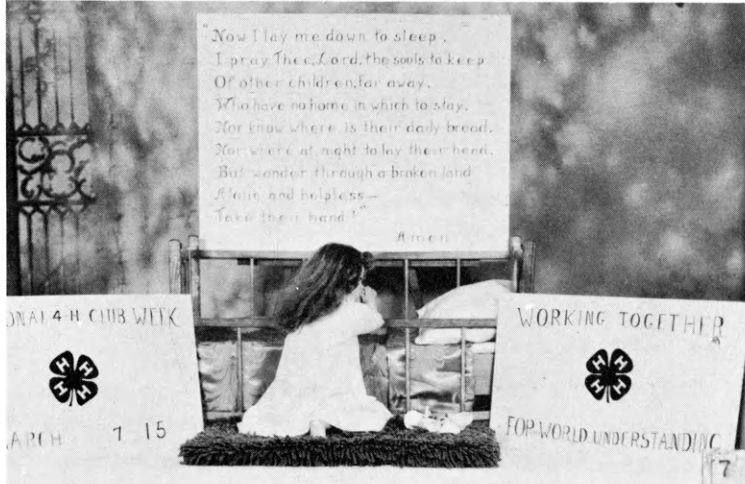 "Now I lay me down to sleep,
I pray Thee, Lord, the souls to keep
Of other children, far away,
Who have no home in which to stay,
Nor know where is their daily bread,
Nor where at night to lay their head,
But wander through a broken land
Alone and helpless—
Take their hand!"
Amen
ONAL 4-H CLUB WEEK
H H
H H
ARCH 7 15
WORKING TOGETHER
H H
H H
FOR WORLD UNDERSTANDING
7